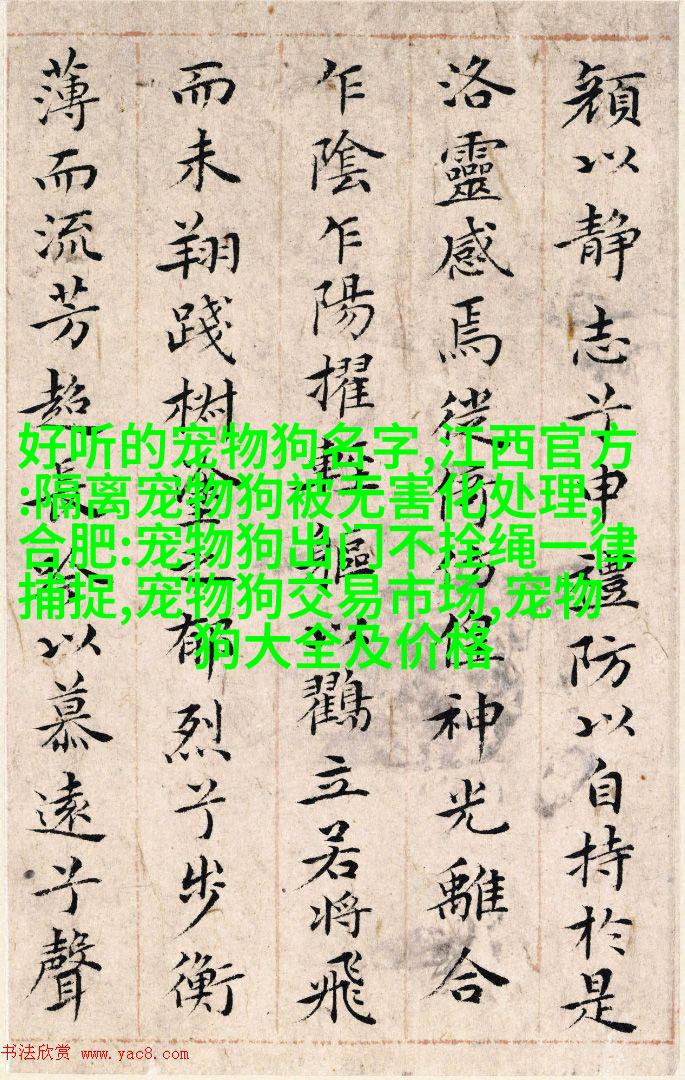 顏以静志兮申禮防以自持於是
洛靈感焉徙倚彷徨神光離合
乍陰乍陽擢輕軀以鸖立若將飛
而未翔踐椒塗之郁烈兮步衡
薄而流芳超長吟以慕遠兮聲
好听的宠物狗名字,江西官方
:隔离宠物狗被无害化处理,
合肥:宠物狗出门不拴绳一律
捕捉,宠物狗交易市场,宠物
狗大全及价格
书法欣赏 www.yac8.com